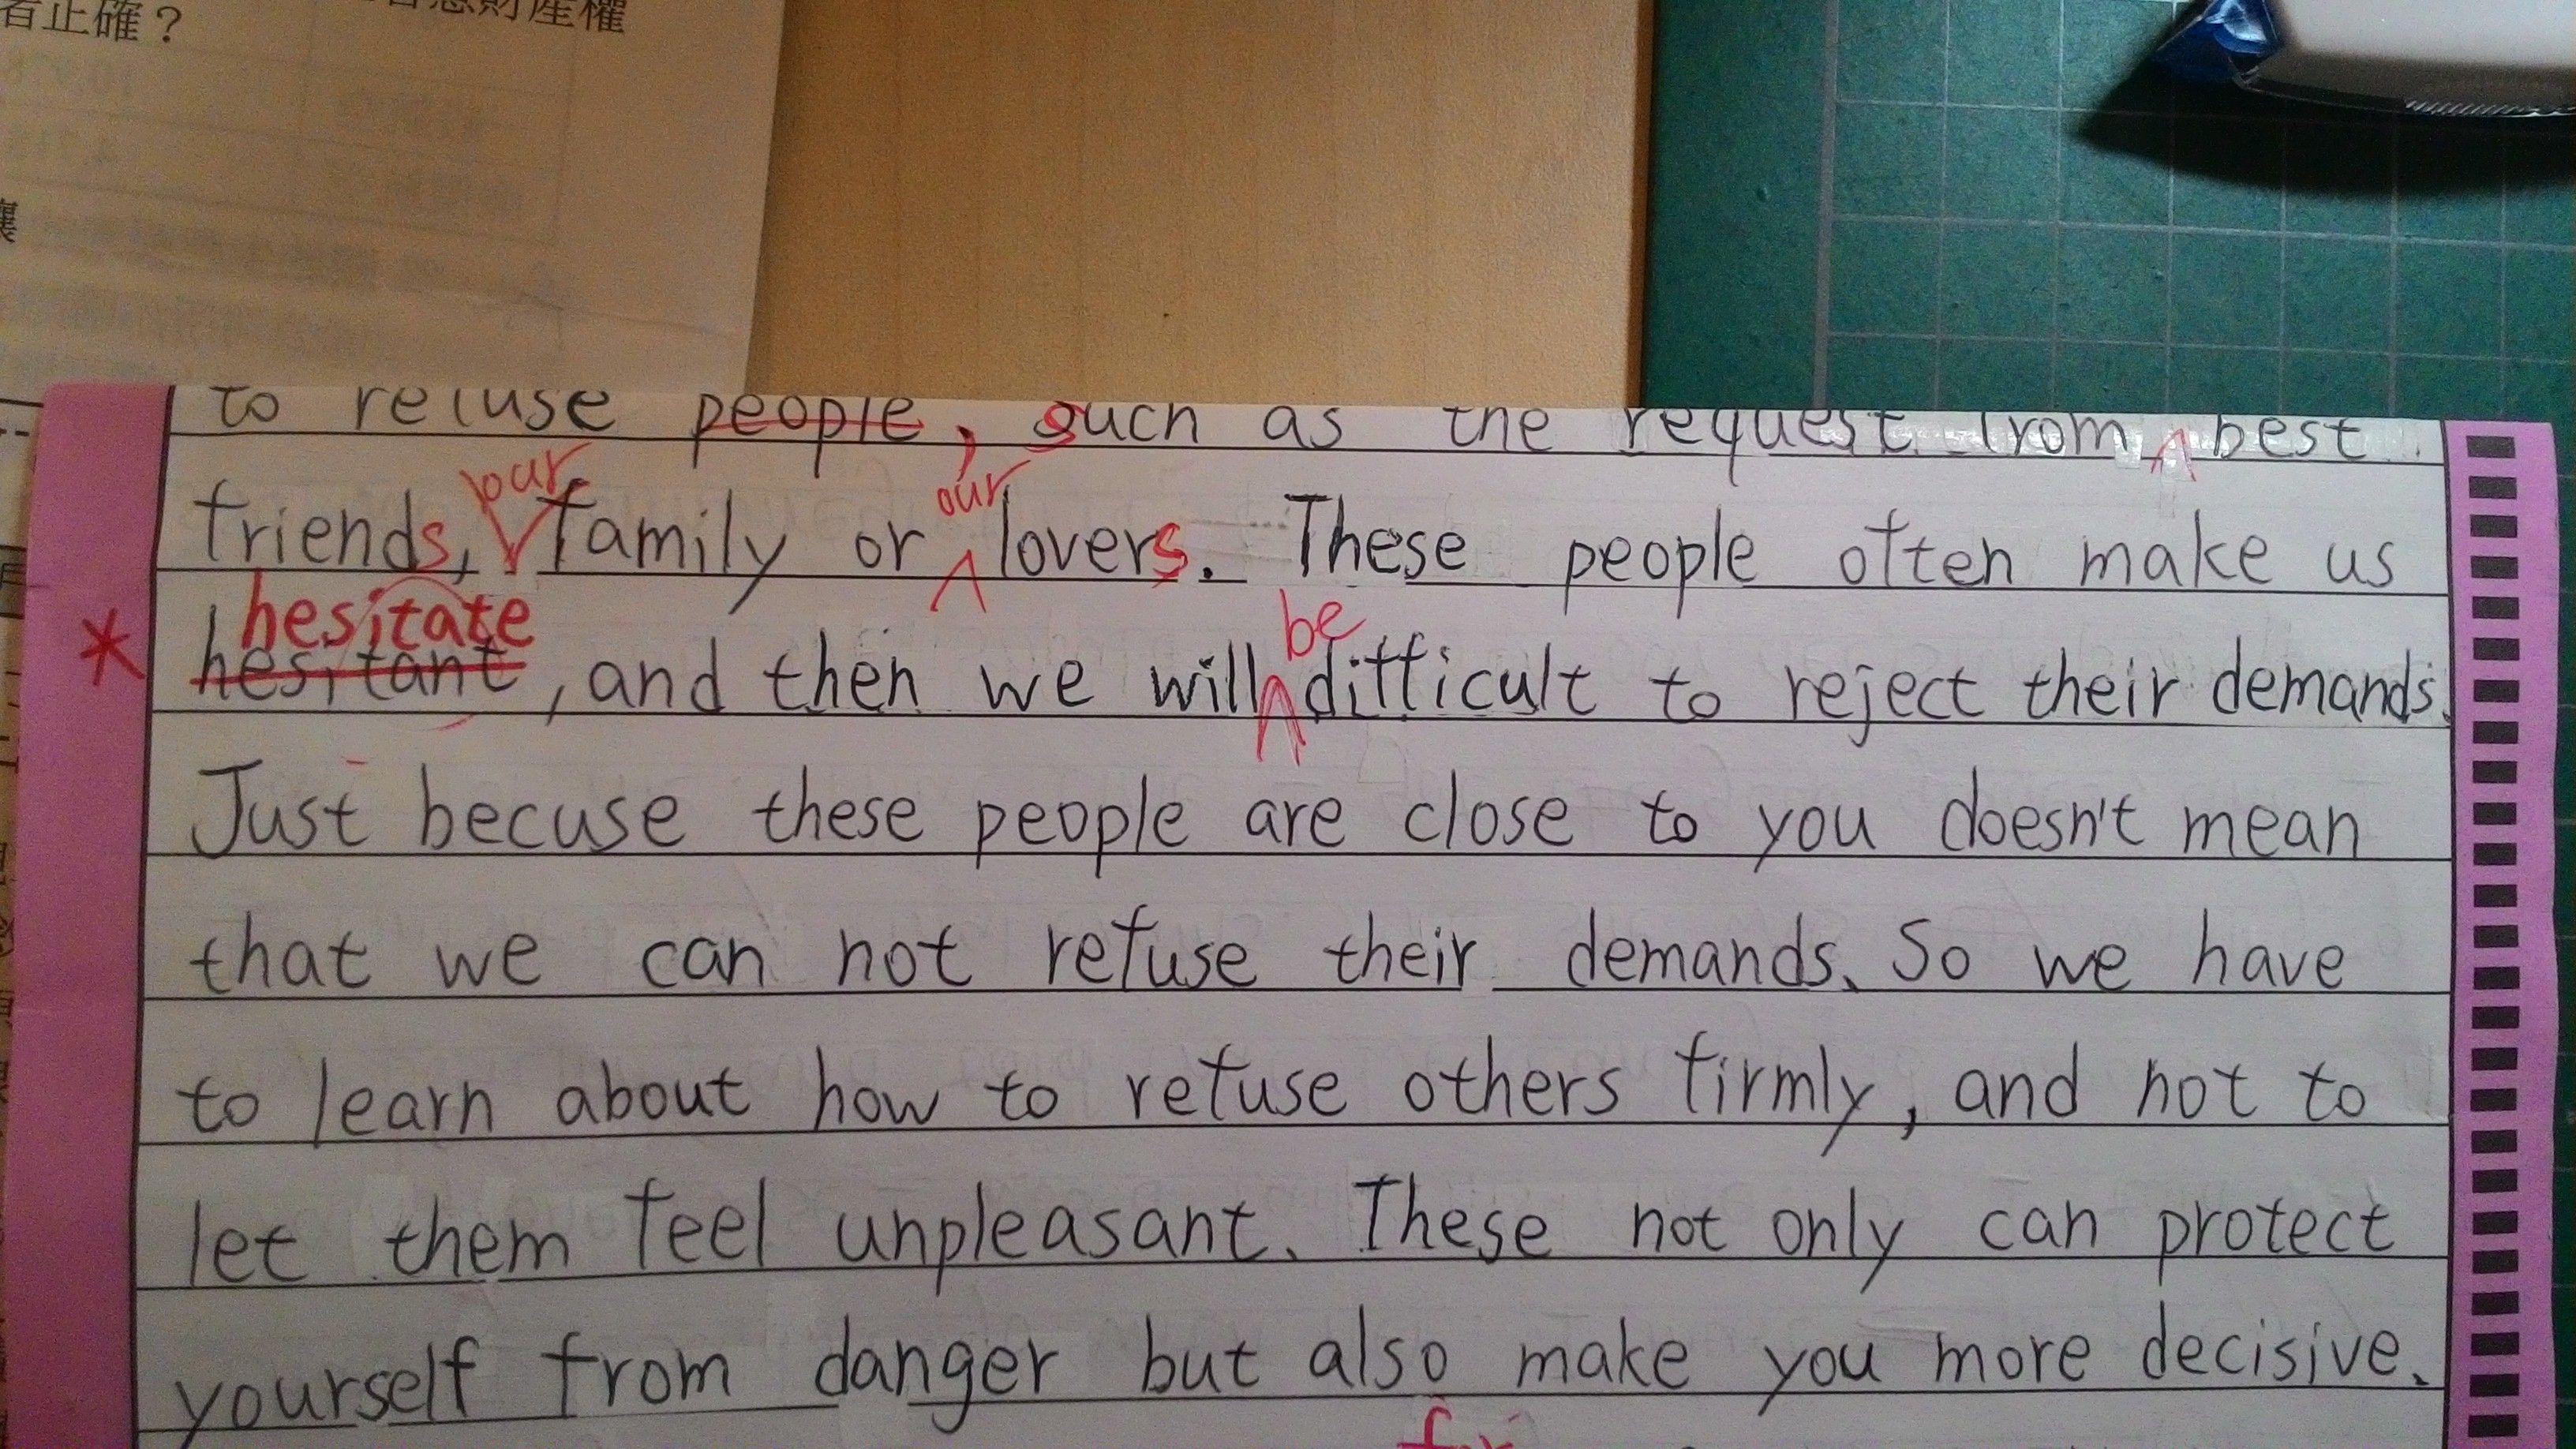 者正確？
慧財產權
to refuse people, such as the request from best
our our
friends, family or lovers. These people often make us
hesitate be
* hesitant, and then we will difficult to reject their demands.
Just becuse these people are close to you doesn't mean
that we can not refuse their demands. So we have
to learn about how to refuse others firmly, and not to
let them feel unpleasant. These not only can protect
yourself from danger but also make you more decisive.